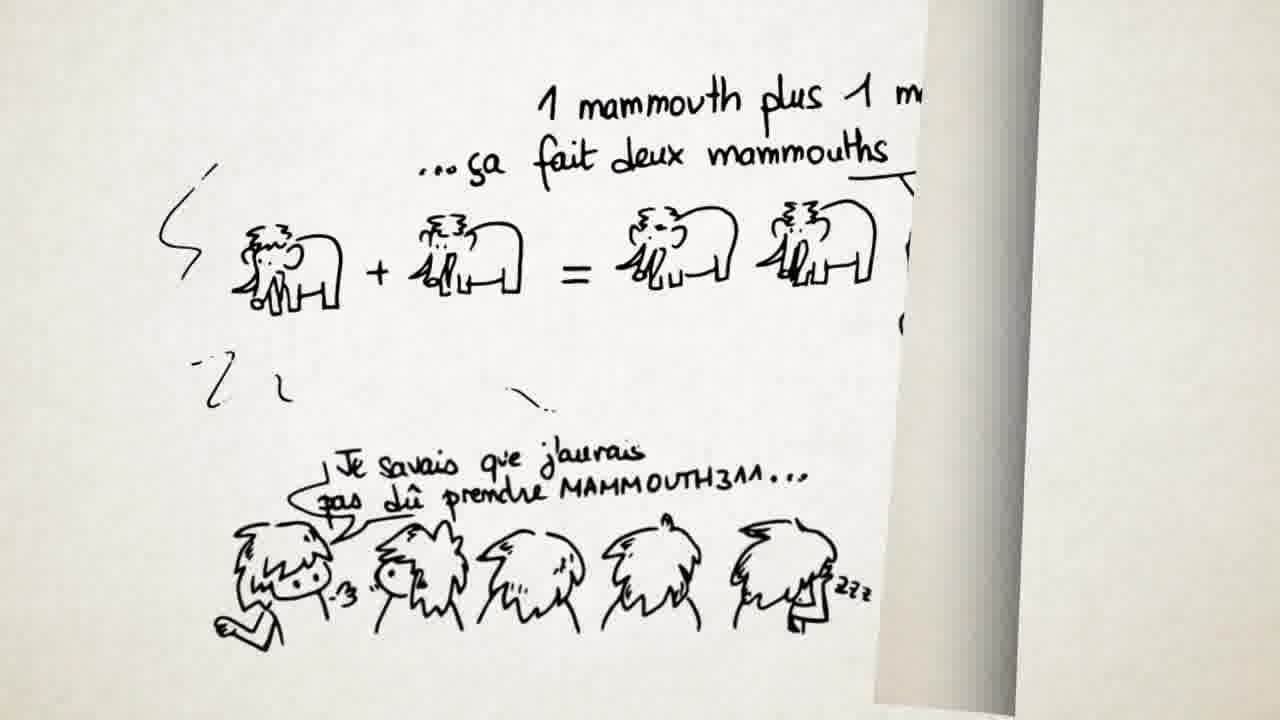 1 mammouth plus 1
...ça fait deux mammouths
+ =
Je savais que j'aurais
pas dû prendre MAMMOUTH311...
zzz